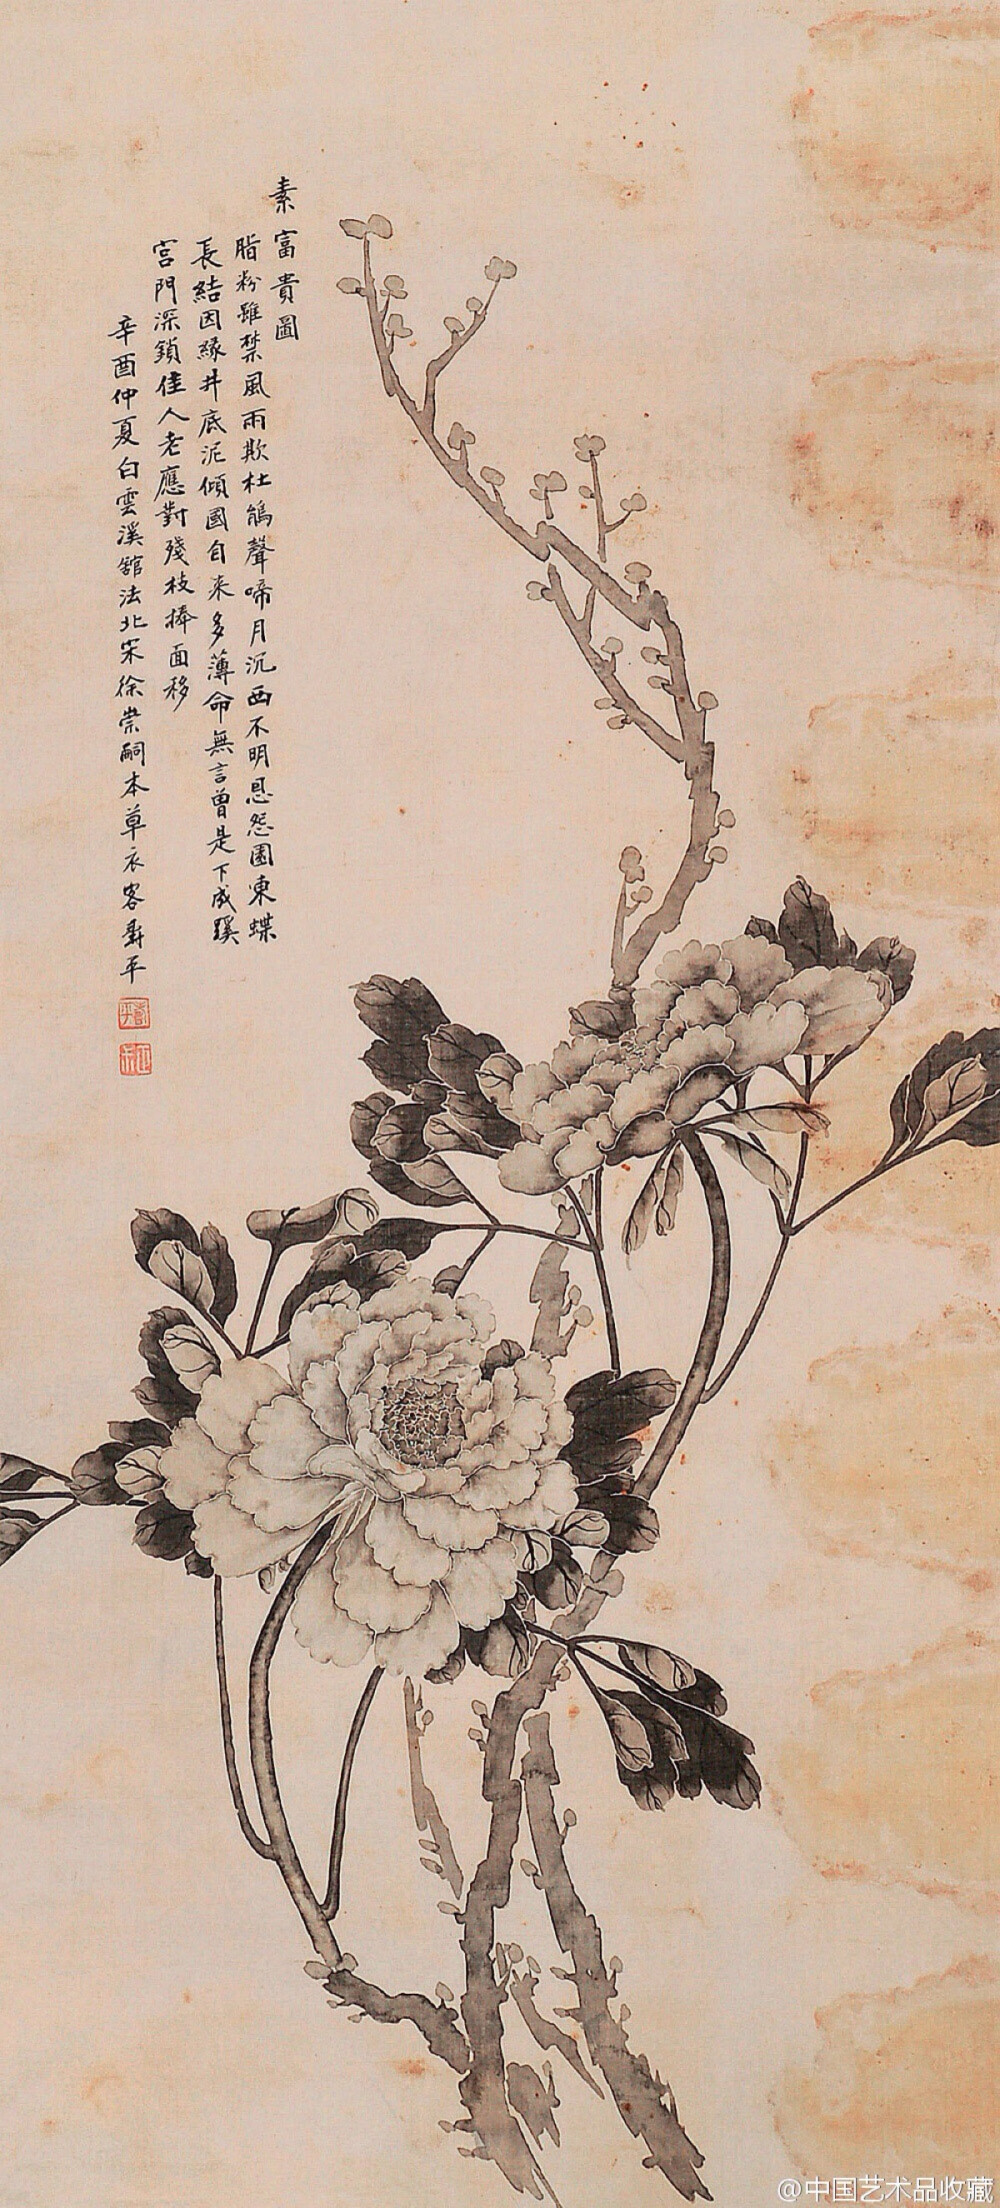 素富貴圖
脂粉雖禁風雨欺杜鵑聲啼月沉西不明恩怨園東蝶
長結因緣井底泥傾國自来多薄命無言曾是下成蹊
宮門深鎖佳人老應對殘枝捧面移
辛酉仲夏白雲溪館法北宋徐崇嗣本草衣客壽平
@中国艺术品收藏